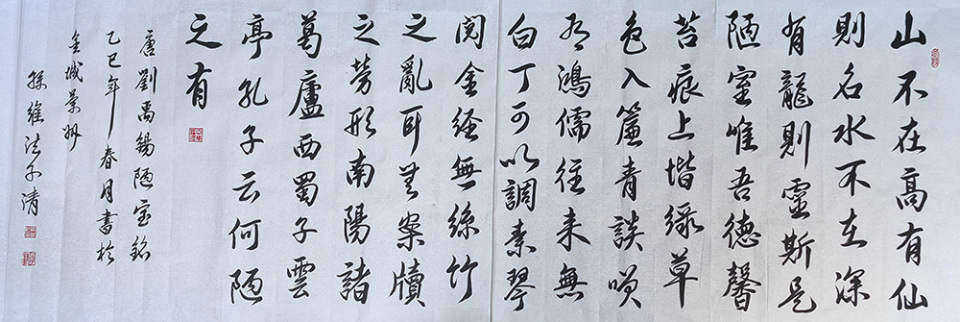 山不在高有仙
則名水不在深
有龍則靈斯是
陋室唯吾德馨
苔痕上堦緑草
色入簾青談咲
有鴻儒往来無
白丁可以調素琴
閲金経無絲竹
之亂耳無案牘
之勞形南陽諸
葛廬西蜀子雲
亭孔子云何陋
之有
唐劉禹錫陋室銘
乙巳年春月書於
金城
孫維法子清